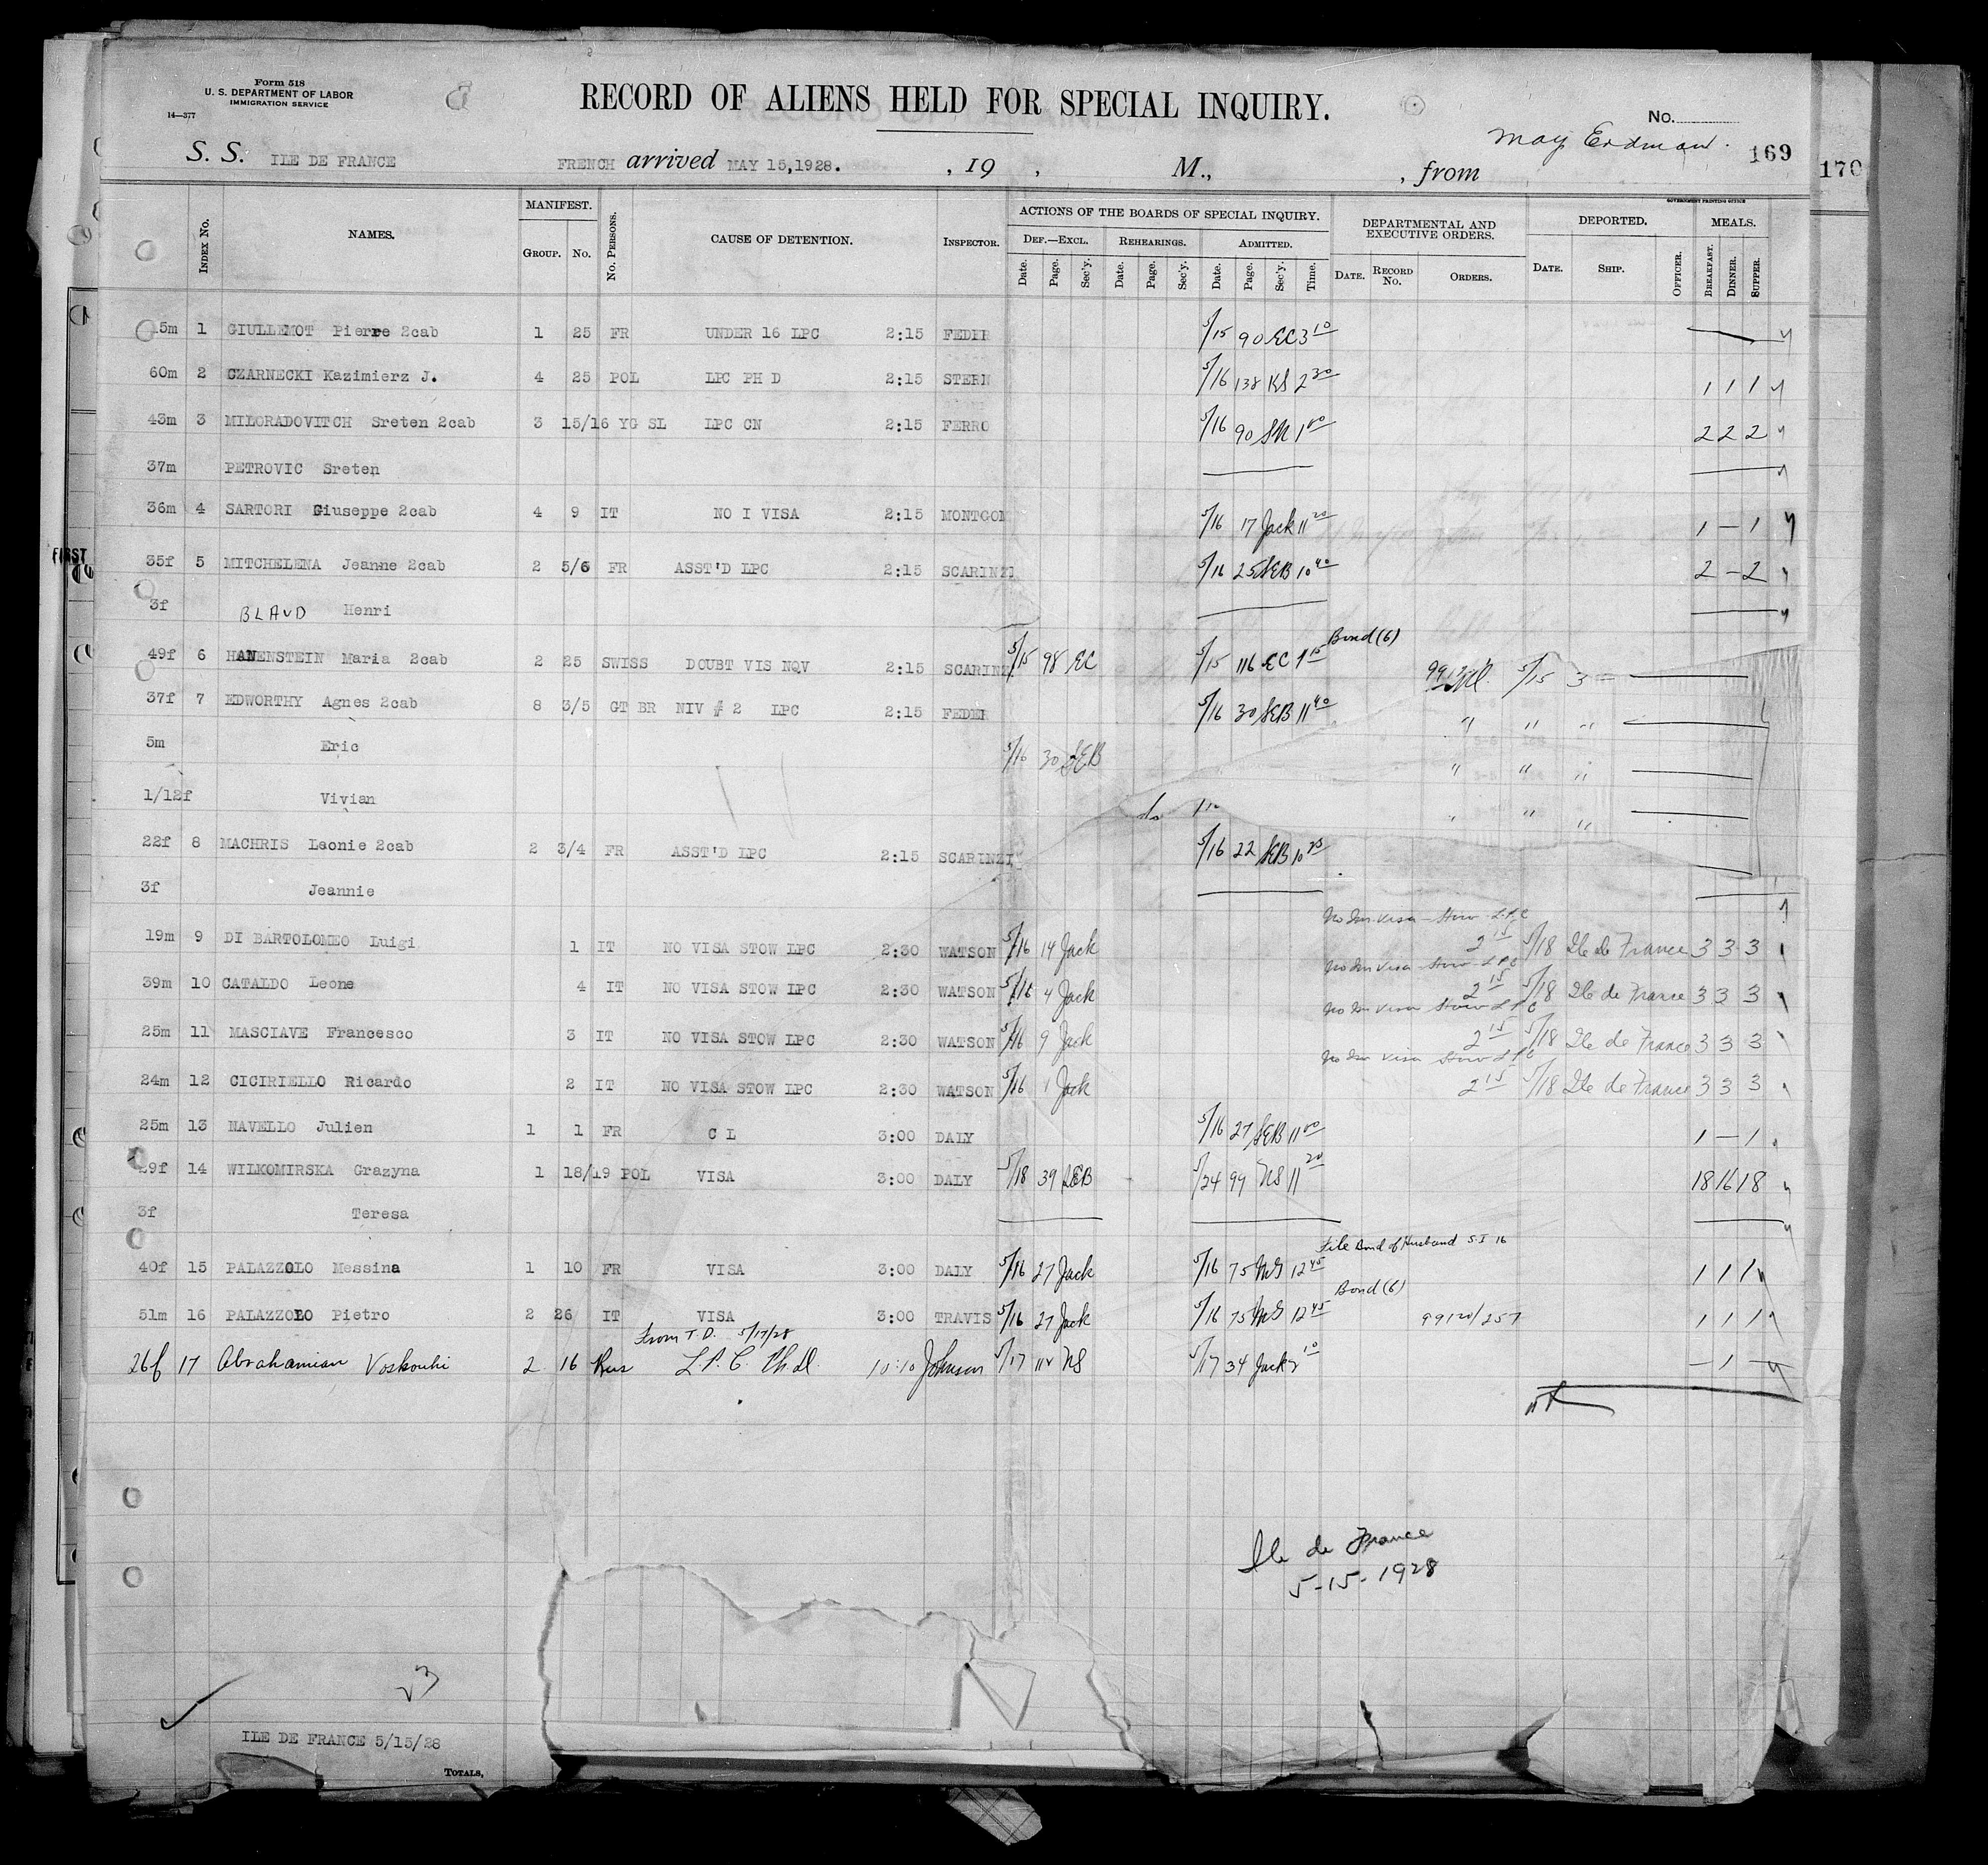 Form 518
U. S. DEPARTMENT OF LABOR
IMMIGRATION SERVICE
14—377
RECORD OF ALIENS HELD FOR SPECIAL INQUIRY.
No.
May Erdman.
169
170
S. S. ILE DE FRANCE FRENCH arrived MAY 15,1928. , 19 , M., , from
GOVERNMENT PRINTING OFFICE
INDEX No. NAMES. MANIFEST. GROUP. No. No. PERSONS. CAUSE OF DETENTION. INSPECTOR. ACTIONS OF THE BOARDS OF SPECIAL INQUIRY. DEPARTMENTAL AND EXECUTIVE ORDERS. DEPORTED. MEALS.
DEF.—EXCL. REHEARINGS. ADMITTED.
Date. Page. Sec'y. Date. Page. Sec'y. Date. Page. Sec'y. Time. DATE. RECORD No. ORDERS. DATE. SHIP. OFFICER. BREAKFAST. DINNER. SUPPER.
15m 1 GIULLEMOT Pierre 2cab 1 25 FR UNDER 16 LPC 2:15 FEDER 5/15 90 EC 3 10
60m 2 CZARNECKI Kazimierz J. 4 25 POL LPC PH D 2:15 STERN 5/16 138 KS 2 30 1 1 1
43m 3 MILORADOVITCH Sreten 2cab 3 15/16 YG SL LPC CN 2:15 FERRO 5/16 90 1 00 2 2 2
37m PETROVIC Sreten
36m 4 SARTORI Giuseppe 2cab 4 9 IT NO I VISA 2:15 MONTGOM 5/16 17 Jack 11 20 1 — 1
FIRST
35f 5 MITCHELENA Jeanne 2cab 2 5/6 FR ASST'D LPC 2:15 SCARINZI 5/16 25 SEB 10 40 2 — 2
3f BLAUD Henri
Bond (6)
49f 6 HANENSTEIN Maria 2cab 2 25 SWISS DOUBT VIS NQV 2:15 SCARINZ 5/15 98 EC 5/15 116 EC 15
5/15 3
37f 7 EDWORTHY Agnes 2cab 8 3/5 GT BR NIV # 2 LPC 2:15 FEDER 5/16 30 SEB 11 40 " " "
5m Eric 5/16 30 SEB " " "
1/12f Vivian " "
22f 8 MACHRIS Leonie 2cab 2 3/4 FR ASST'D LPC 2:15 SCARINZI 5/16 22 SEB 10
3f Jeannie
No Im. Visa - Stow - L.P.C
19m 9 DI BARTOLOMEO Luigi 1 IT NO VISA STOW LPC 2:30 WATSON 5/16 14 Jack 2 15 5/18 Ile de France 3 3 3
No Im Visa - Stow - L P C
39m 10 CATALDO Leone 4 IT NO VISA STOW LPC 2:30 WATSON 5/16 4 Jack 2 15 5/18 Ile de France 3 3 3
No Im Visa Stow L P C
25m 11 MASCIAVE Francesco 3 IT NO VISA STOW LPC 2:30 WATSON 5/16 9 Jack 2 15 5/18 Ile de France 3 3 3
No Im Visa Stow L P C
24m 12 CICIRIELLO Ricardo 2 IT NO VISA STOW LPC 2:30 WATSON 5/16 1 Jack 2 15 5/18 Ile de France 3 3 3
25m 13 NAVELLO Julien 1 1 FR C L 3:00 DALY 5/16 27 SEB 11 00 1 — 1
29f 14 WILKOMIRSKA Grazyna 1 18/19 POL VISA 3:00 DALY 5/18 39 SEB 5/24 99 NS 11 20 18 16 18
3f Teresa
File Bond of Husband S.I 16
40f 15 PALAZZOLO Messina 1 10 FR VISA 3:00 DALY 5/16 27 Jack 5/16 75 12 45 1 1 1
Bond (6)
51m 16 PALAZZOLO Pietro 2 26 IT VISA 3:00 TRAVIS 5/16 27 Jack 5/16 75 12 45 99120/257 1 1 1
From T. D. 5/17/28
26f 17 Abrahamian Voskouhi 2 16 Rus L. P. C. Ph.D. 10:10 Johnson 5/17 NS 5/17 34 Jack 2 10 — 1 —
Ile de France
5-15-1928
23
ILE DE FRANCE 5/15/28
TOTALS,